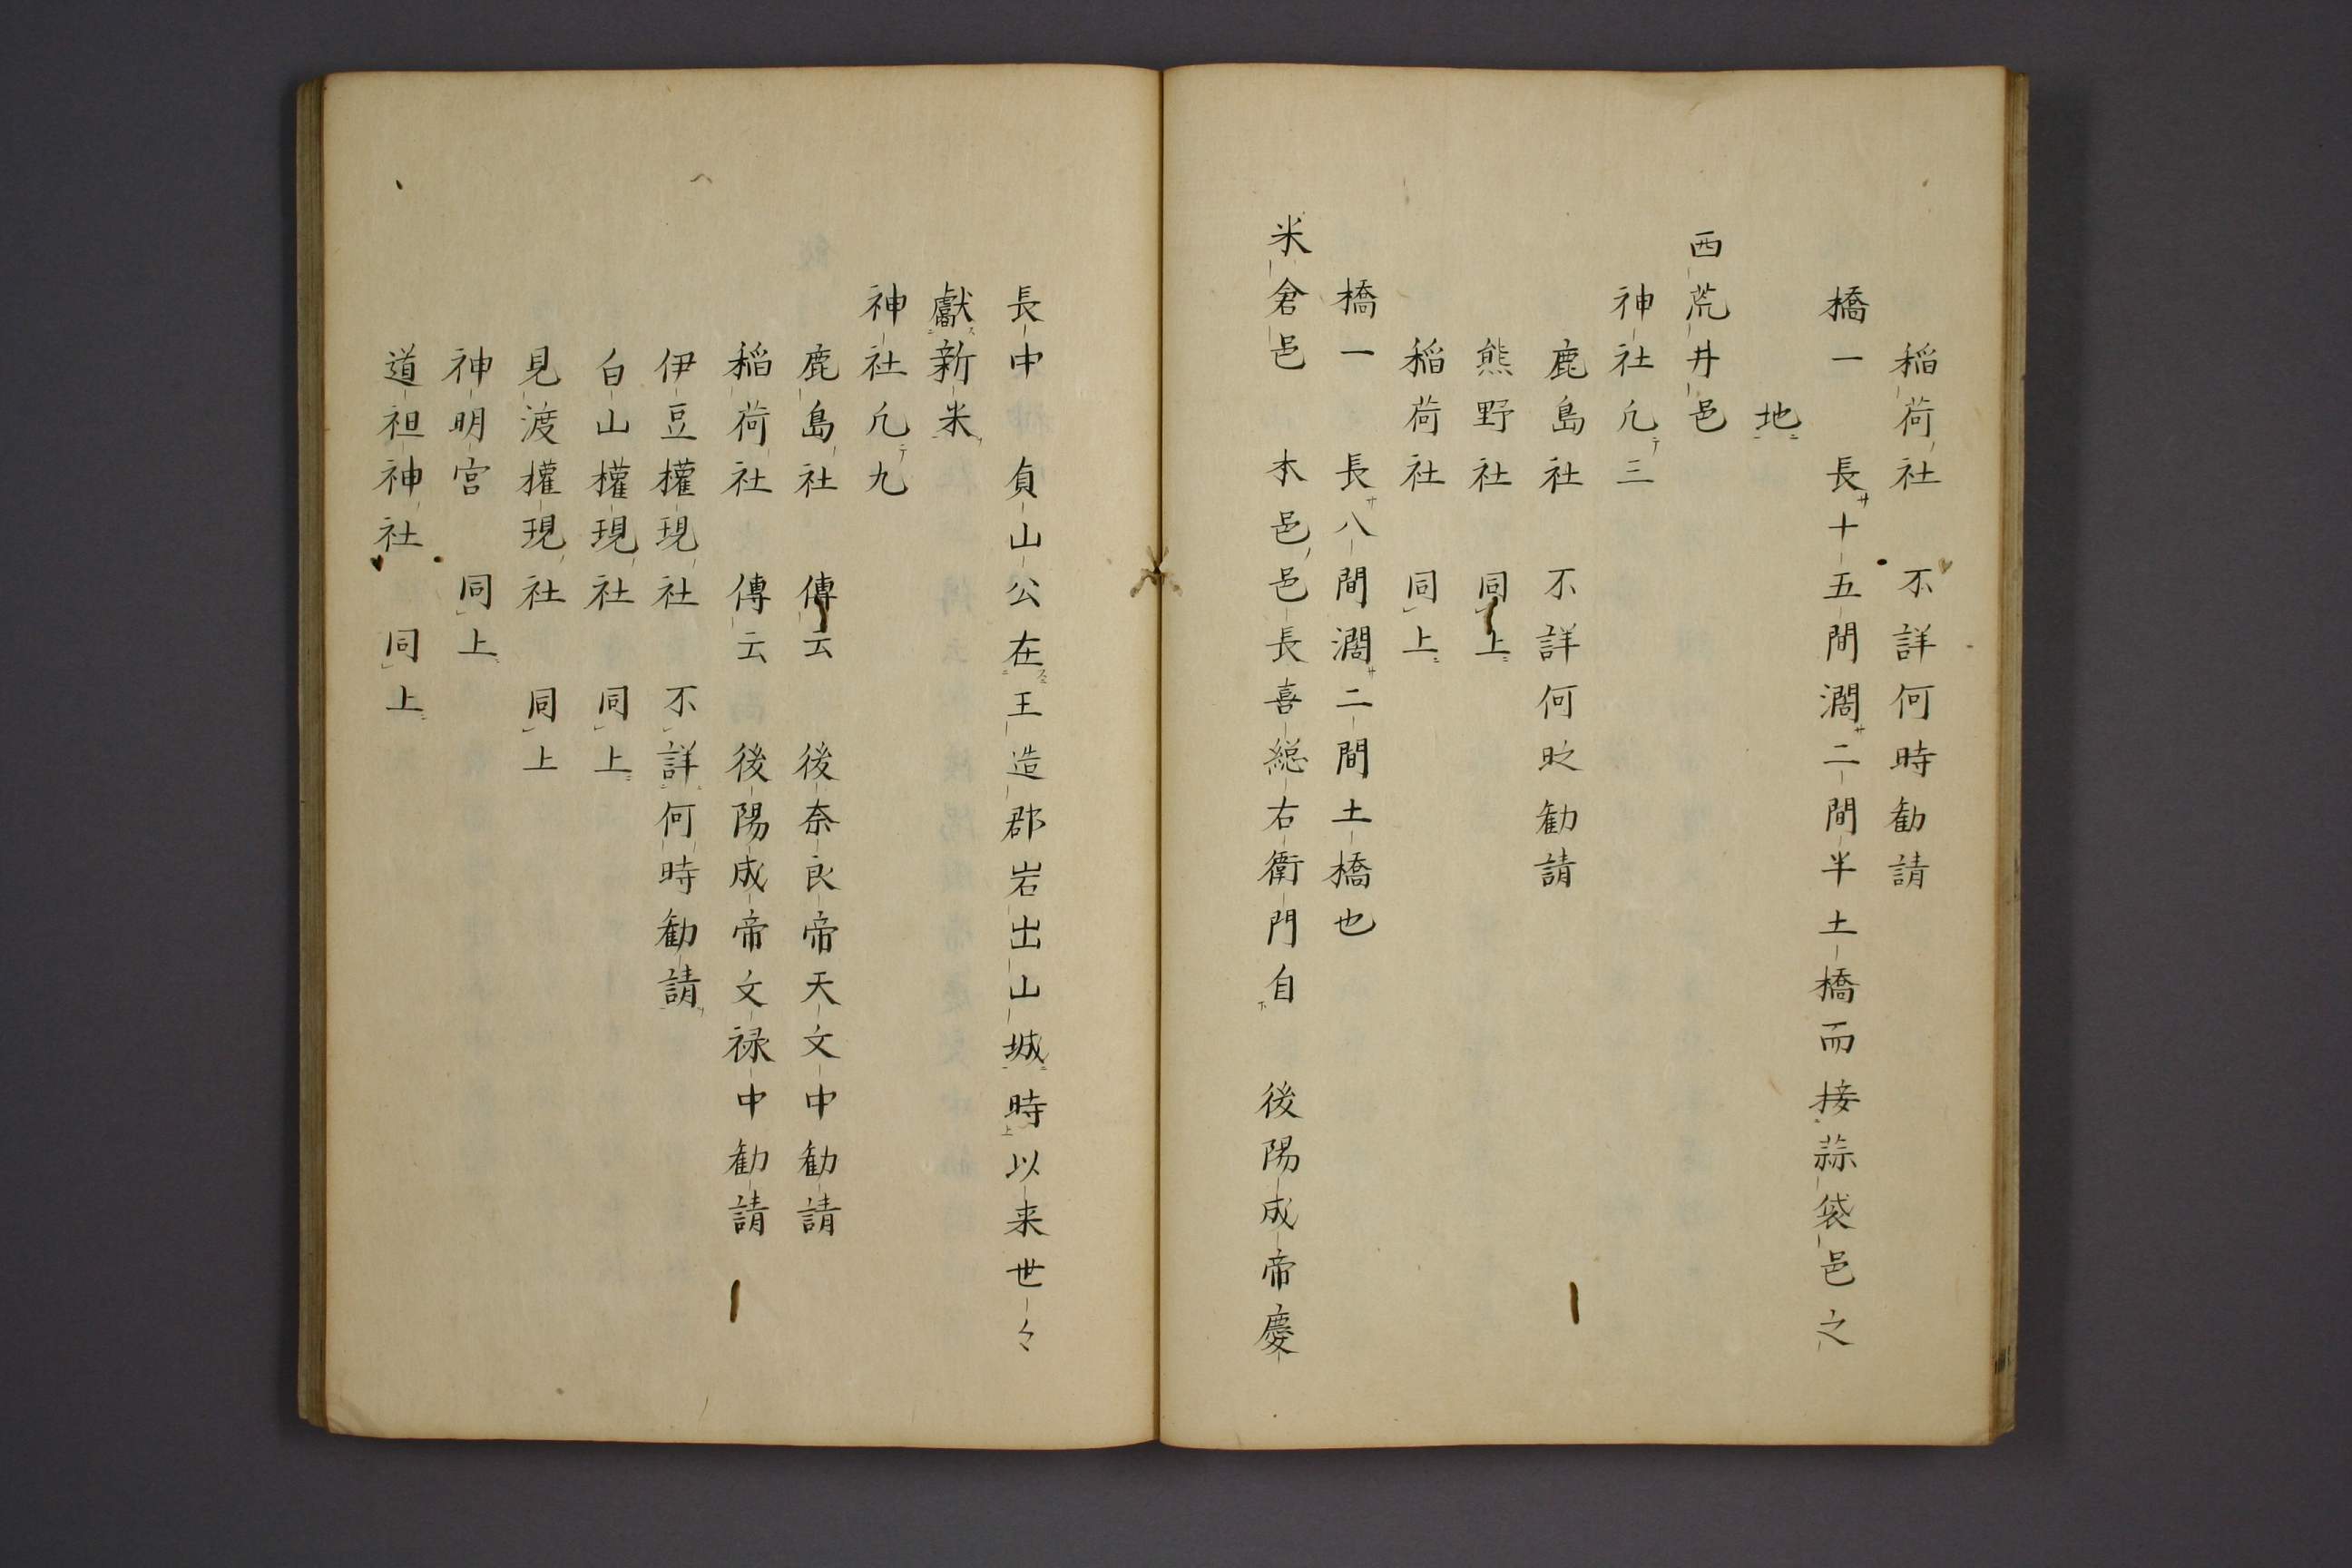 稲荷社　不詳何時勧請
橋一　長サ十五間濶サ二間半土橋而接蒜袋邑之
地ニ
西荒井邑
神社凢テ三
鹿島社　不詳何时勧請
熊野社　同上ニ
稲荷社　同上ニ
橋一　長サ八間濶サ二間土橋也
米倉邑　本邑邑長喜総右衛門自　後陽成帝慶
長中　貞山公在玉造郡岩出山城時以来世々
獻新米
神社凢テ九
鹿島社　傳云　後奈良帝天文中勧請
稲荷社　傳云　後陽成帝文禄中勧請
伊豆權現社　不詳何時勧請
白山權現社　同上ニ
見渡權現社　同上
神明宮　同上ニ
道祖神社　同上ニ